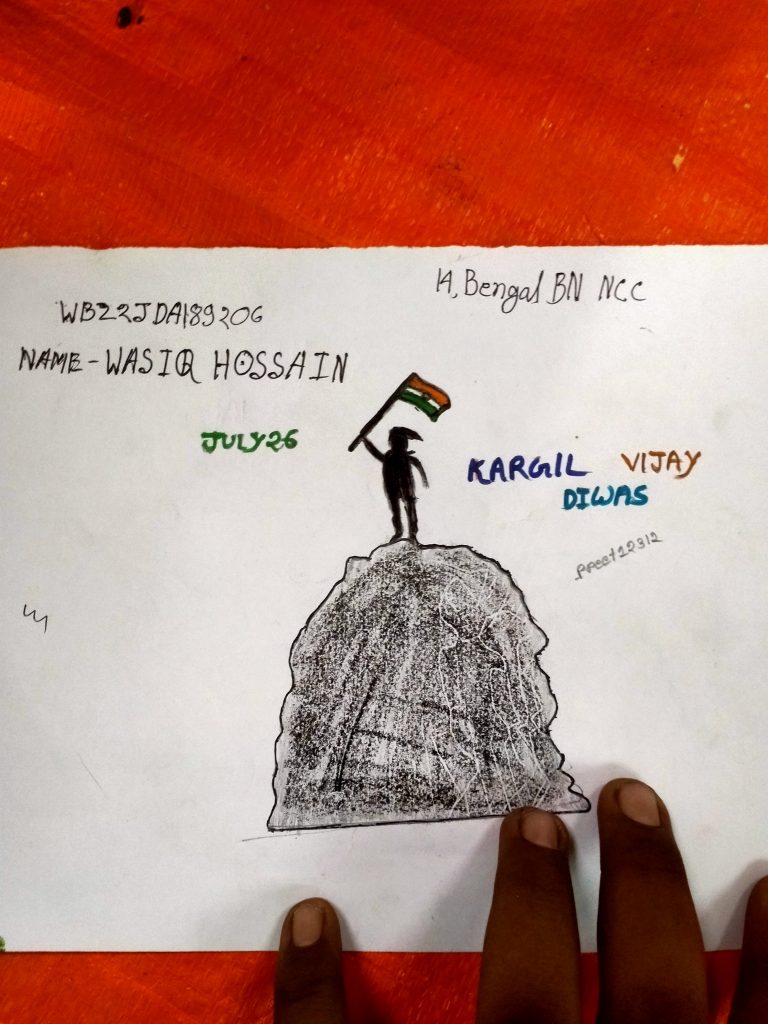 14, Bengal BN NCC
WB22JDA189206
NAME - WASIQ HOSSAIN
JULY 26
KARGIL VIJAY
DIWAS